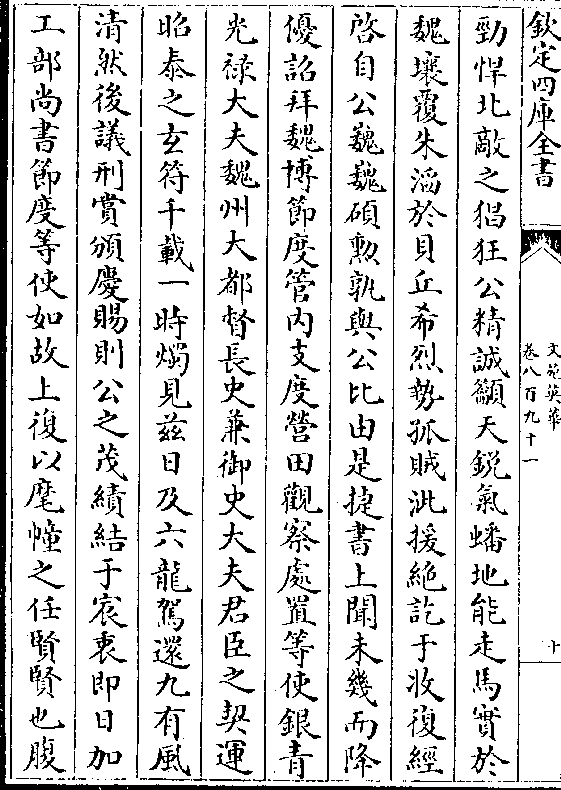 欽定四庫全書
文苑英華
卷八百九十一
十
勁悍北敵之猖狂公精誠籲天銳氣蟠地能走馬實於
魏壤覆朱滔於貝丘希烈勢孤賊泚援絶訖于收復經
啓自公巍巍碩勲孰與公比由是捷書上聞未幾而降
優詔拜魏博節度管内支度營田觀察處置等使銀青
光禄大夫魏州大都督長史兼御史大夫君臣之契運
昭泰之玄符千載一時燭見兹日及六龍駕還九有風
清然後議刑賞頒慶賜則公之茂績結于宸衷即日加
工部尚書節度等使如故上復以麾幢之任賢賢也腹